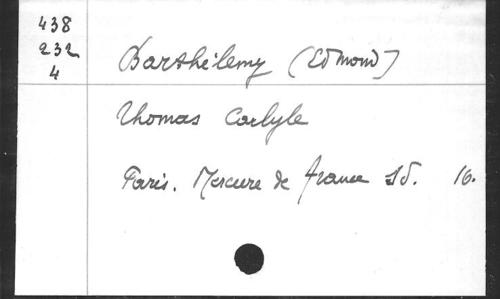 438
232
4
Barthélemy (Edmond)
Thomas Carlyle
Paris. Mercure de France sd. 16.